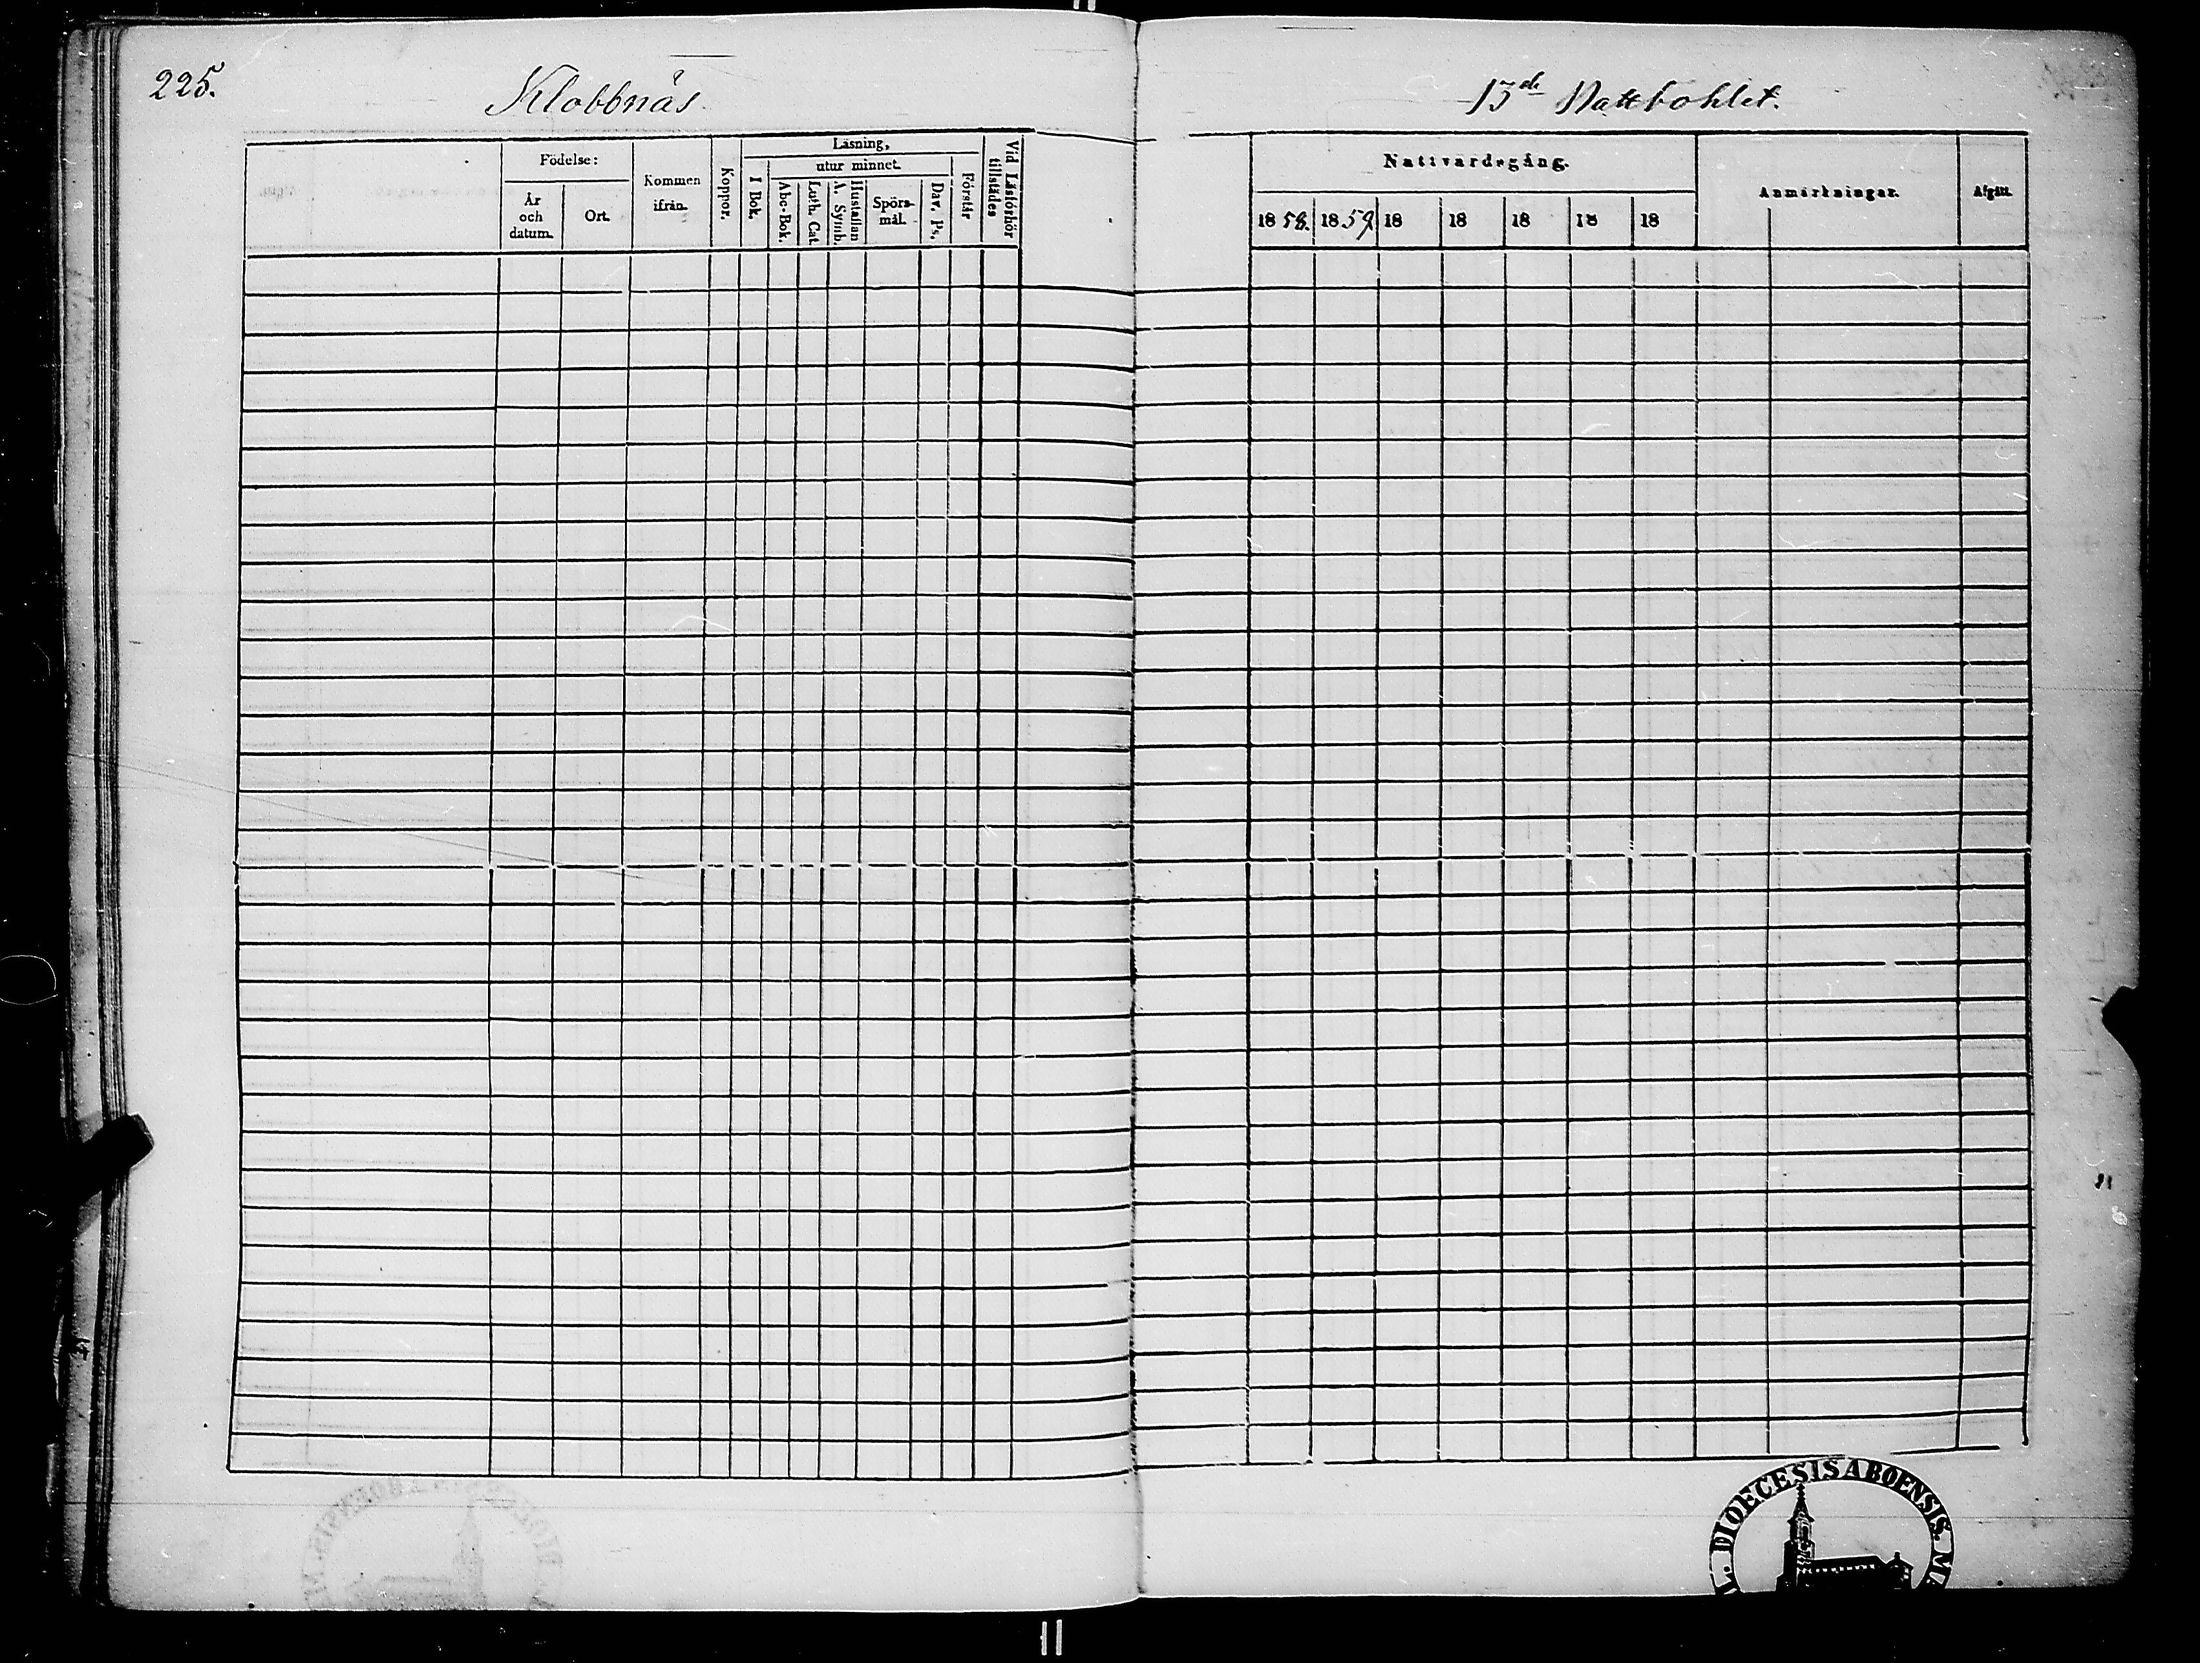 225.
Klobbnäs
13de Nattbohlet.
Födelse:
År och datum.
Ort.
Kommen ifrån.
Koppor.
Läsning,
I Bok.
utur minnet.
Abc-Bok.
Luth. Cat.
Hustaflan A. Symb.
Spörsmål.
Dav. Ps.
Förstår
Vid Läsförhör tillstädes
Nattvardsgång.
1858.
1859
18
18
18
18
18
Anmärkningar.
Afgått.
DIOECESIS ABOENSIS. M